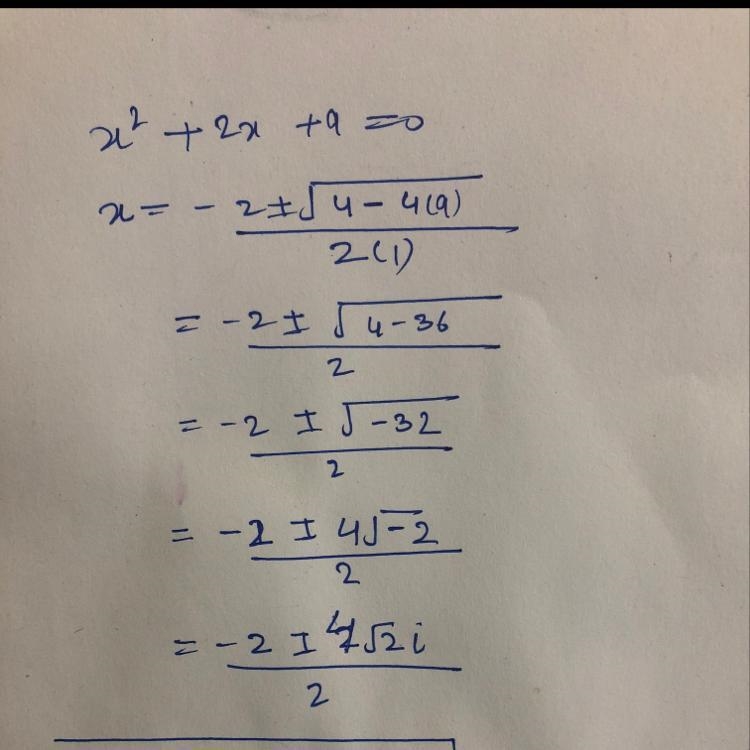 x² + 2x + 9 = 0
x = - 2 ± √4 - 4(9)
2(1)
= - 2 ± √4 - 36
2
= - 2 ± √-32
2
= - 2 ± 4√-2
2
= - 2 ± 4√2 i
2